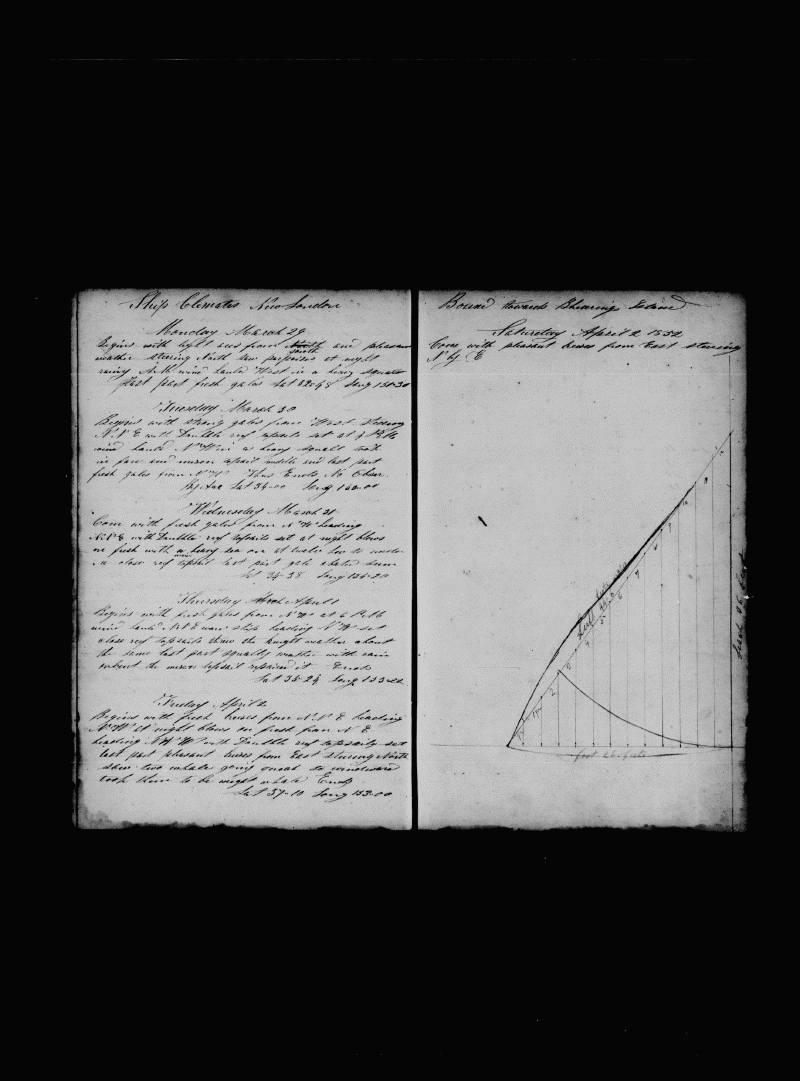 Ship Clematis New London
Monday March 29
Begins with light airs from North South and pleasant
weather steering North saw porpoises at night
rainy wind hauld West in a heavy squall
last part fresh gales Lat 32-48 Long 158-30
Tuesday March 30
Begins with strong gales from West Steering
N N E with Doubble reef topsails set at 4 P M
wind hauld N W in a heavy squall took
in fore and mizen topsail middle and last part
fresh gales from N W Thus Ends No Obser
By Acc Lat 34-00 Long 160-00
Wednesday March 31
Com with fresh gales from N W heading
N N E with Doubble reef topsails set at night blows
on fresh with a heavy sea on at twelve
close reef topsail last part gale abated some
Lat 34-38 Long 156-20
Thursday April 1
Begins with fresh gales from N W at 6 P M
wind hauld N E ware ship heading N W set
close reef topsails threw the night weather about
the same last part squally weather with rain
the mizen topsail repaired it Ends
Lat 35-24 Long 153-22
Friday April 2
Begins with fresh breses from N N E heading
N W at night blows on fresh from N E
heading N N W with Doubble reef topsails set
last part pleasant breses from East steering North
saw two whales going quick to windward
took them to be right whale Ends
Lat 37-10 Long 153-00
Bound towards Bhearing Island
Saturday April 2 1852
Com with pleasant breses from East steering
N by E
2
3
4
5
6
7
8
9
foot 26 feet